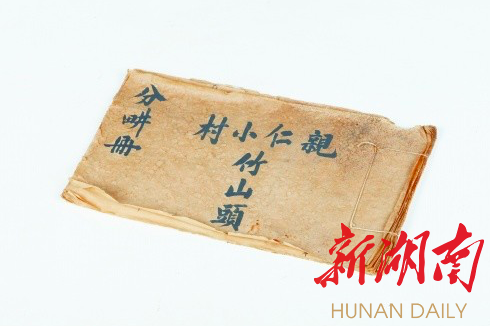 親仁
小竹山頭
村
分畊冊
新湖南
HUNAN DAILY